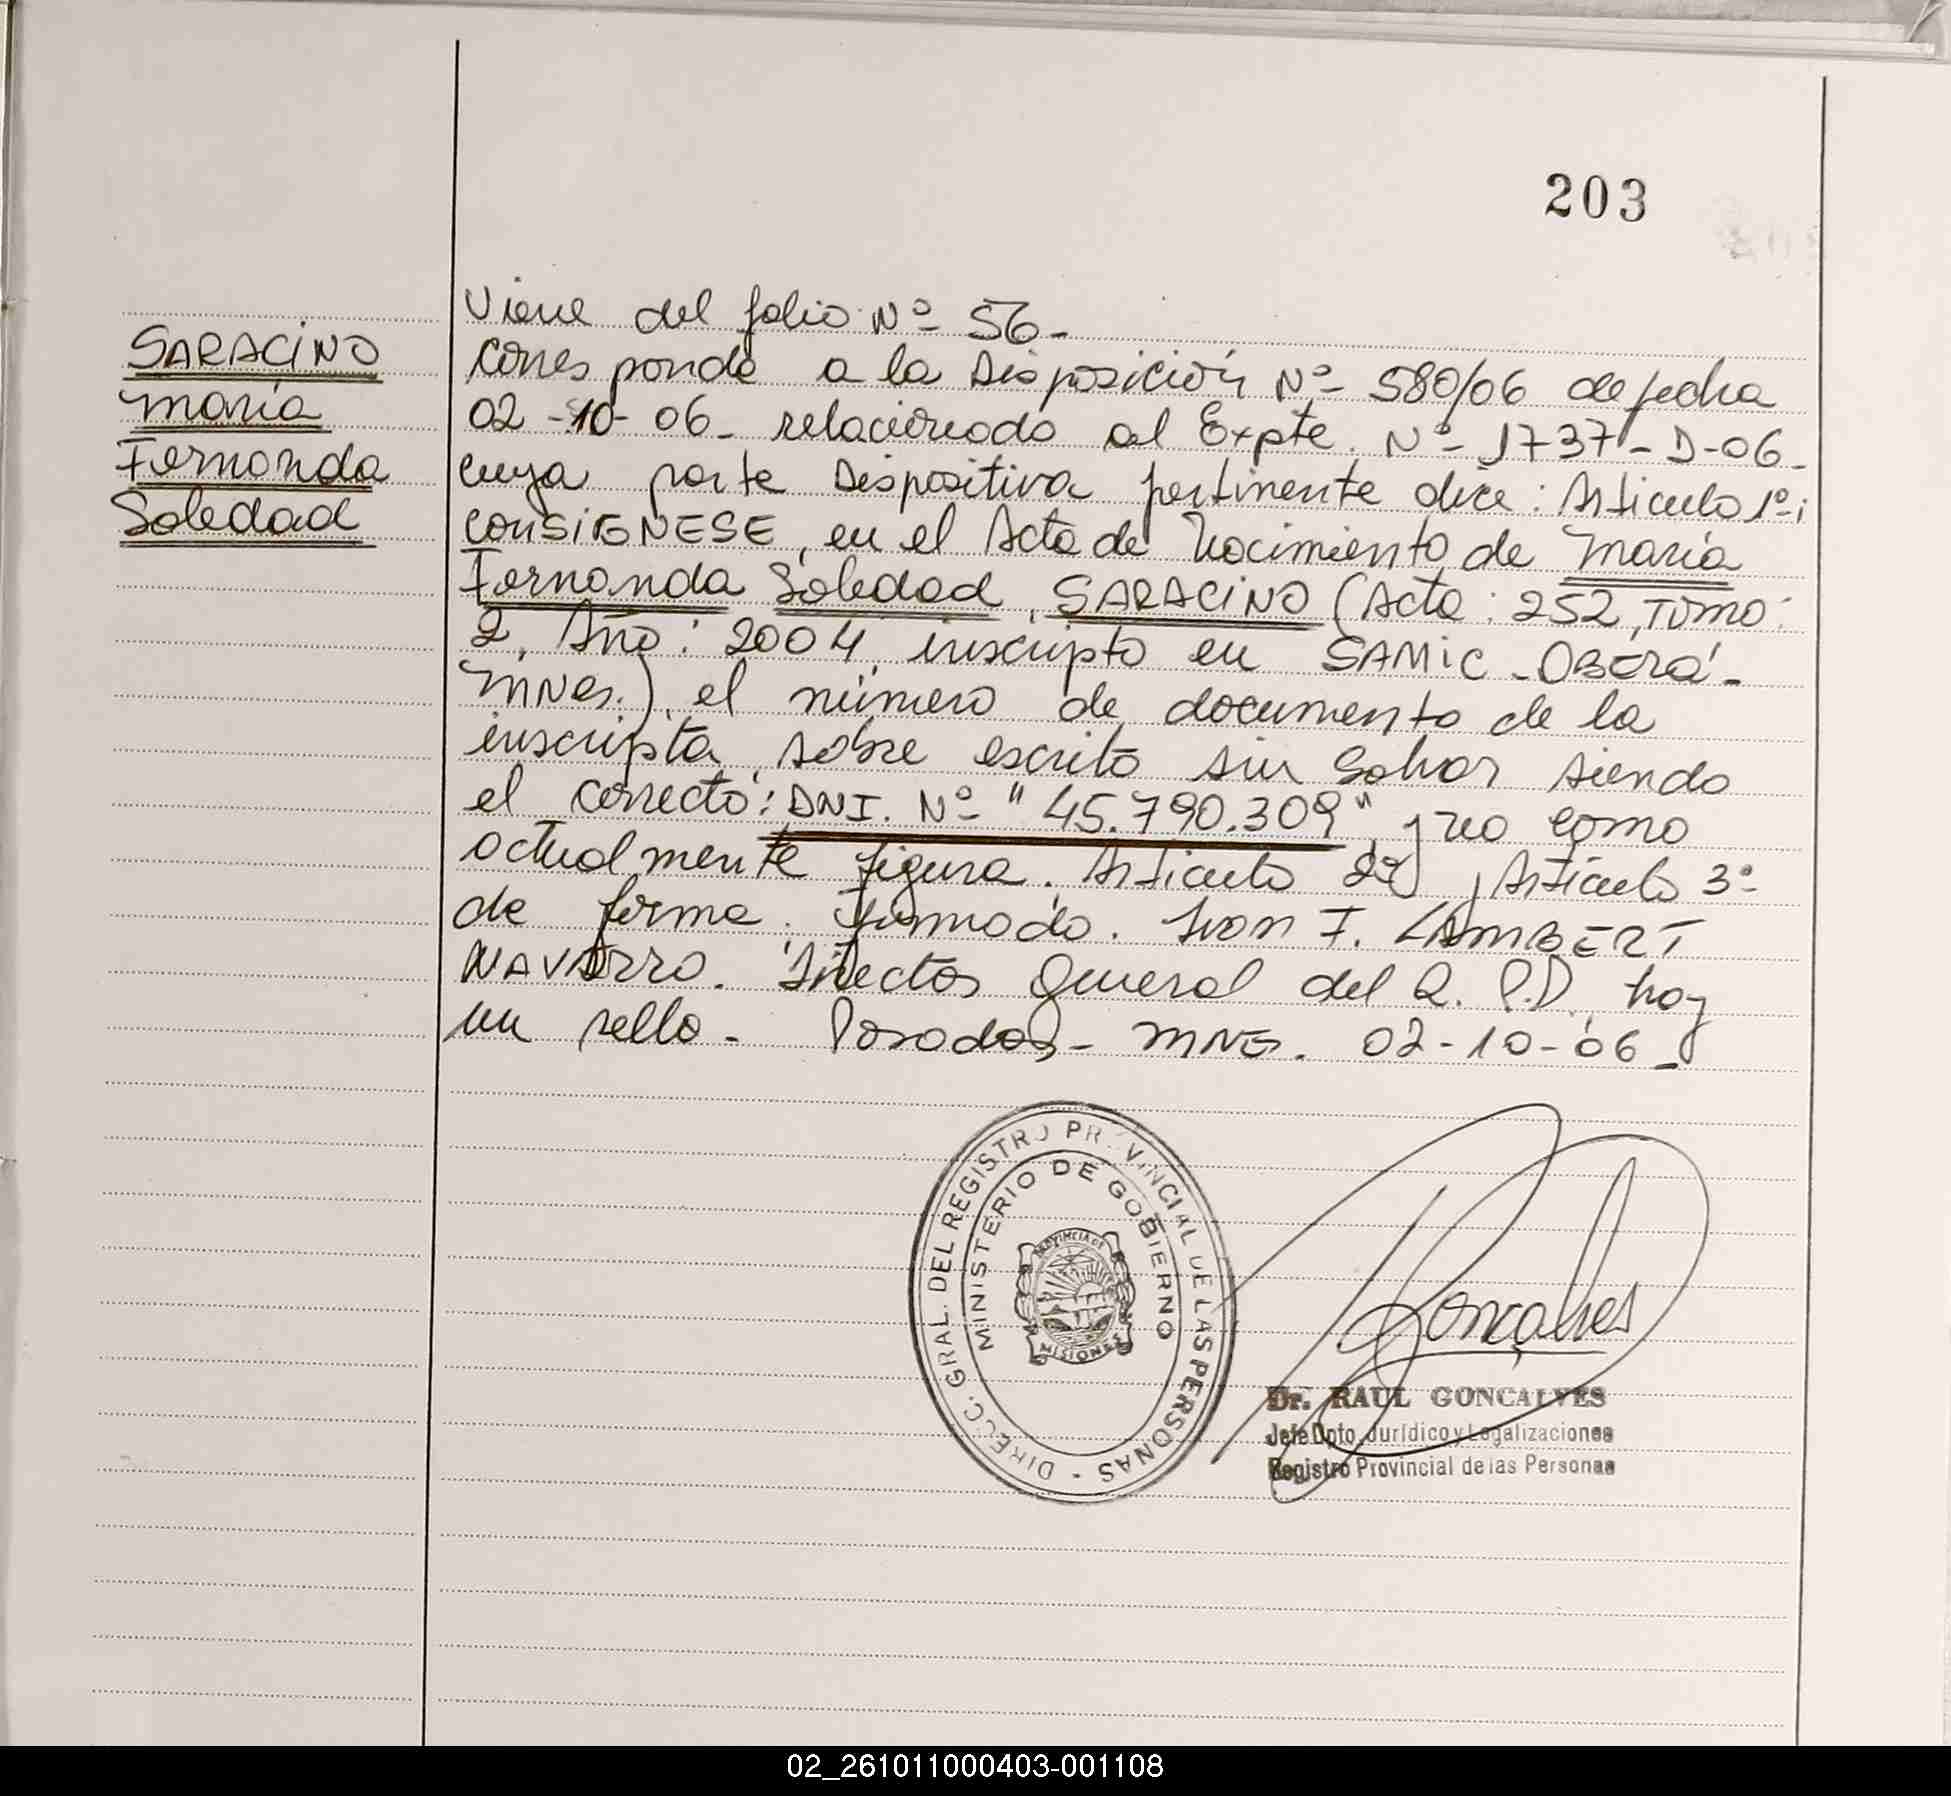 203
SARACINO
María
Fernanda
Soledad
Viene del folio Nº 56-
Corresponde a la Disposición Nº 580/06 de fecha
02-10-06- relacionado al Expte. Nº 1737-D-06-
cuya parte Dispositiva pertinente dice: Articulo 1º:
CONSIGNESE, en el Acta de Nacimiento de María
Fernanda Soledad, SARACINO (Acta: 252, Tomo:
2, Año: 2004, inscripto en SAMIC-OBERÁ-
MNES.), el número de documento de la
inscripta, sobre escrito sin salvar siendo
el correcto: DNI. Nº "45.790.309" y no como
actualmente figura. Articulo 2º y Artículo 3º
de forma. Firmado. Ivan F. LAMBERT
NAVARRO. Director General del R.P.P. hay
un sello- Posadas- MNES. 02-10-06-
DIRECC. GRAL. DEL REGISTRO PROVINCIAL DE LAS PERSONAS -
MINISTERIO DE GOBIERNO
PROVINCIA DE
MISIONES
Gonçalves
Dr. RAUL GONCALVES
Jefe Dpto. Jurídico y Legalizaciones
Registro Provincial de las Personas
02_261011000403-001108